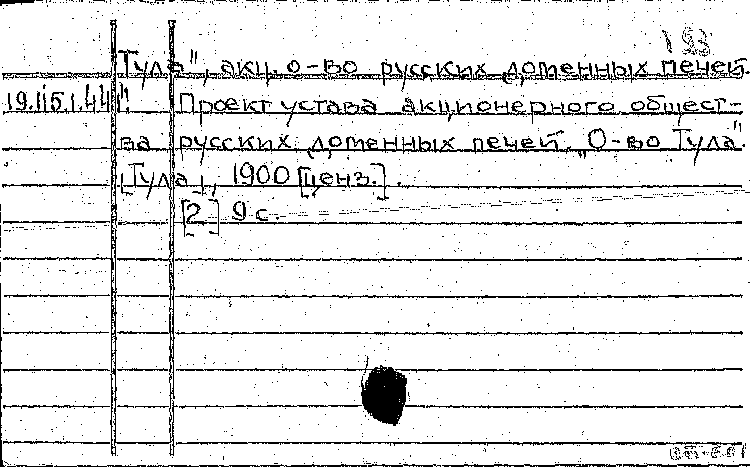 193
Тула", акц. о-во русских доменных печей.
19.115.1.44 Проект устава акционерного общест-
ва русских доменных печей „О-во Тула".
[Тула], 1900 [ценз.].
[2] 9 с.